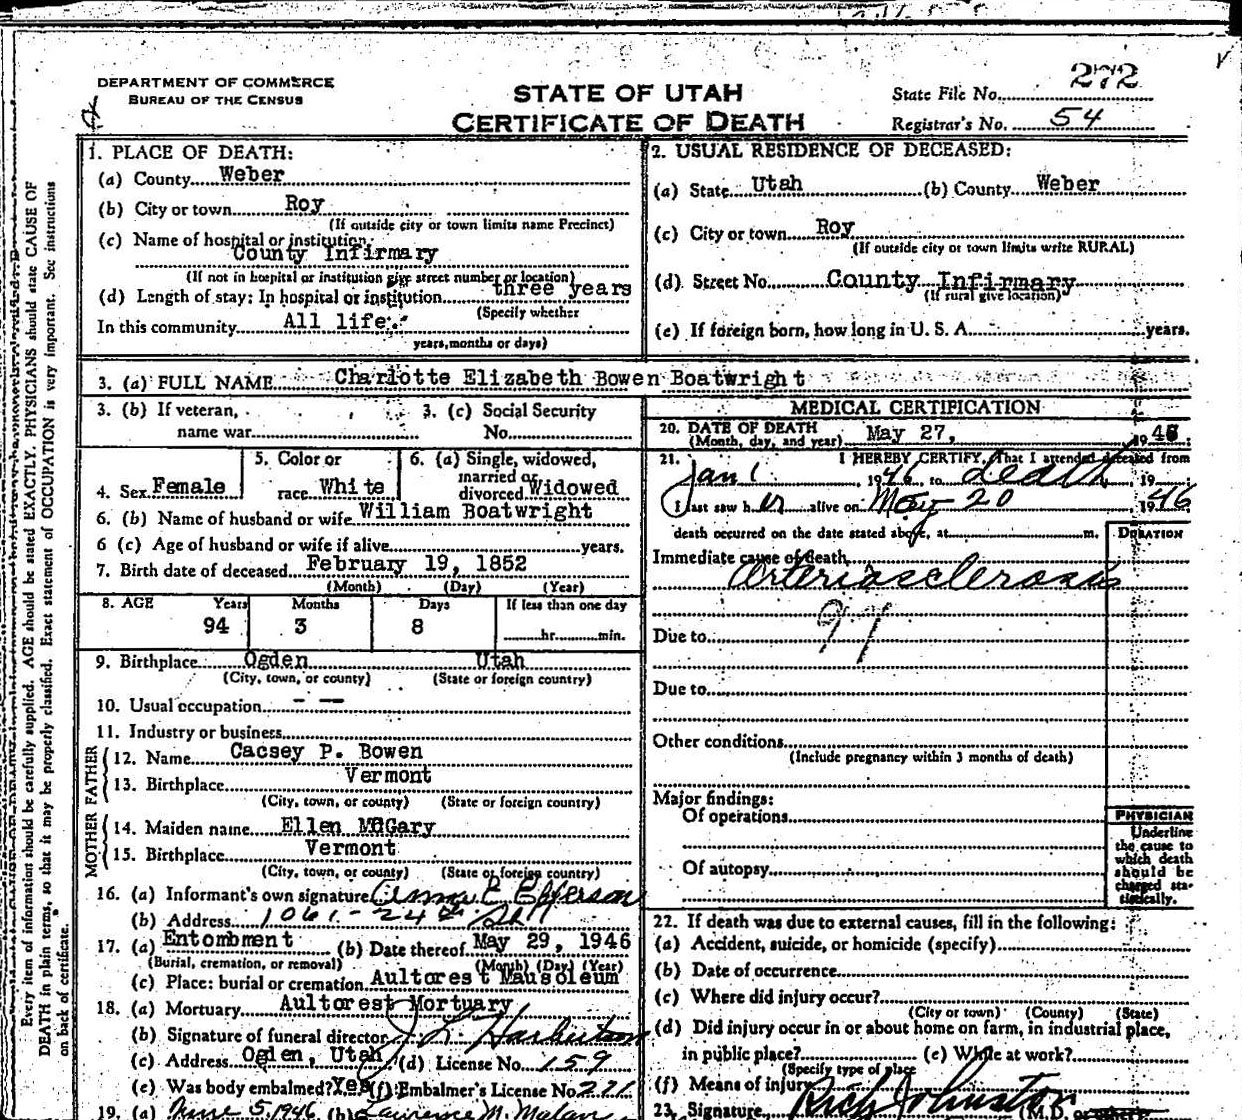 272
DEPARTMENT OF COMMERCE
BUREAU OF THE CENSUS
STATE OF UTAH
CERTIFICATE OF DEATH
State File No.
Registrar's No. 54
1. PLACE OF DEATH:
(a) County Weber
(b) City or town Roy
(If outside city or town limits name Precinct)
(c) Name of hospital or institution:
County Infirmary
(If not in hospital or institution give street number or location)
(d) Length of stay: In hospital or institution three years
(Specify whether
In this community All life.
years, months or days)
2. USUAL RESIDENCE OF DECEASED:
(a) State Utah (b) County Weber
(c) City or town Roy
(If outside city or town limits write RURAL)
(d) Street No. County Infirmary
(If rural give location)
(e) If foreign born, how long in U. S. A. years.
3. (a) FULL NAME Charlotte Elizabeth Bowen Boatwright
3. (b) If veteran,
name war
3. (c) Social Security
No.
4. Sex Female
5. Color or
race White
6. (a) Single, widowed,
married or
divorced Widowed
6. (b) Name of husband or wife William Boatwright
6 (c) Age of husband or wife if alive years.
7. Birth date of deceased February 19, 1852
(Month) (Day) (Year)
8. AGE Years Months Days If less than one day
94 3 8 hr. min.
9. Birthplace Ogden Utah
(City, town, or county) (State or foreign country)
10. Usual occupation - --
11. Industry or business
FATHER
12. Name Cacsey P. Bowen
13. Birthplace Vermont
(City, town, or county) (State or foreign country)
MOTHER
14. Maiden name Ellen McGary
15. Birthplace Vermont
(City, town, or county) (State or foreign country)
16. (a) Informant's own signature
(b) Address 1061 - 24th
17. (a) Entombment (b) Date thereof May 29, 1946
(Burial, cremation, or removal) (Month) (Day) (Year)
(c) Place: burial or cremation Aultorest Mausoleum
18. (a) Mortuary Aultorest Mortuary
(b) Signature of funeral director
(c) Address Ogden, Utah (d) License No. 159
(e) Was body embalmed? Yes (f) Embalmer's License No. 221
19. (a) June 5, 1946 (b) Lawrence M. Malan
MEDICAL CERTIFICATION
20. DATE OF DEATH
(Month, day, and year) May 27, 1946
21. I HEREBY CERTIFY, That I attended deceased from
Jan 1, 1946, to death, 19
I last saw her alive on May 20 1946
death occurred on the date stated above, at m.
DURATION
Immediate cause of death
Arteriosclerosis
97
Due to
Due to
Other conditions
(Include pregnancy within 3 months of death)
Major findings:
Of operations
Of autopsy
PHYSICIAN
Underline
the cause to
which death
should be
charged sta-
tistically.
22. If death was due to external causes, fill in the following:
(a) Accident, suicide, or homicide (specify)
(b) Date of occurrence
(c) Where did injury occur?
(City or town) (County) (State)
(d) Did injury occur in or about home on farm, in industrial place,
in public place? (e) While at work?
(Specify type of place
(f) Means of injury
23. Signature Rich Johnston (M.D. or
Every item of information should be carefully supplied. AGE should be stated EXACTLY. PHYSICIANS should state CAUSE OF
DEATH in plain terms, so that it may be properly classified. Exact statement of OCCUPATION is very important. See instructions
on back of certificate.